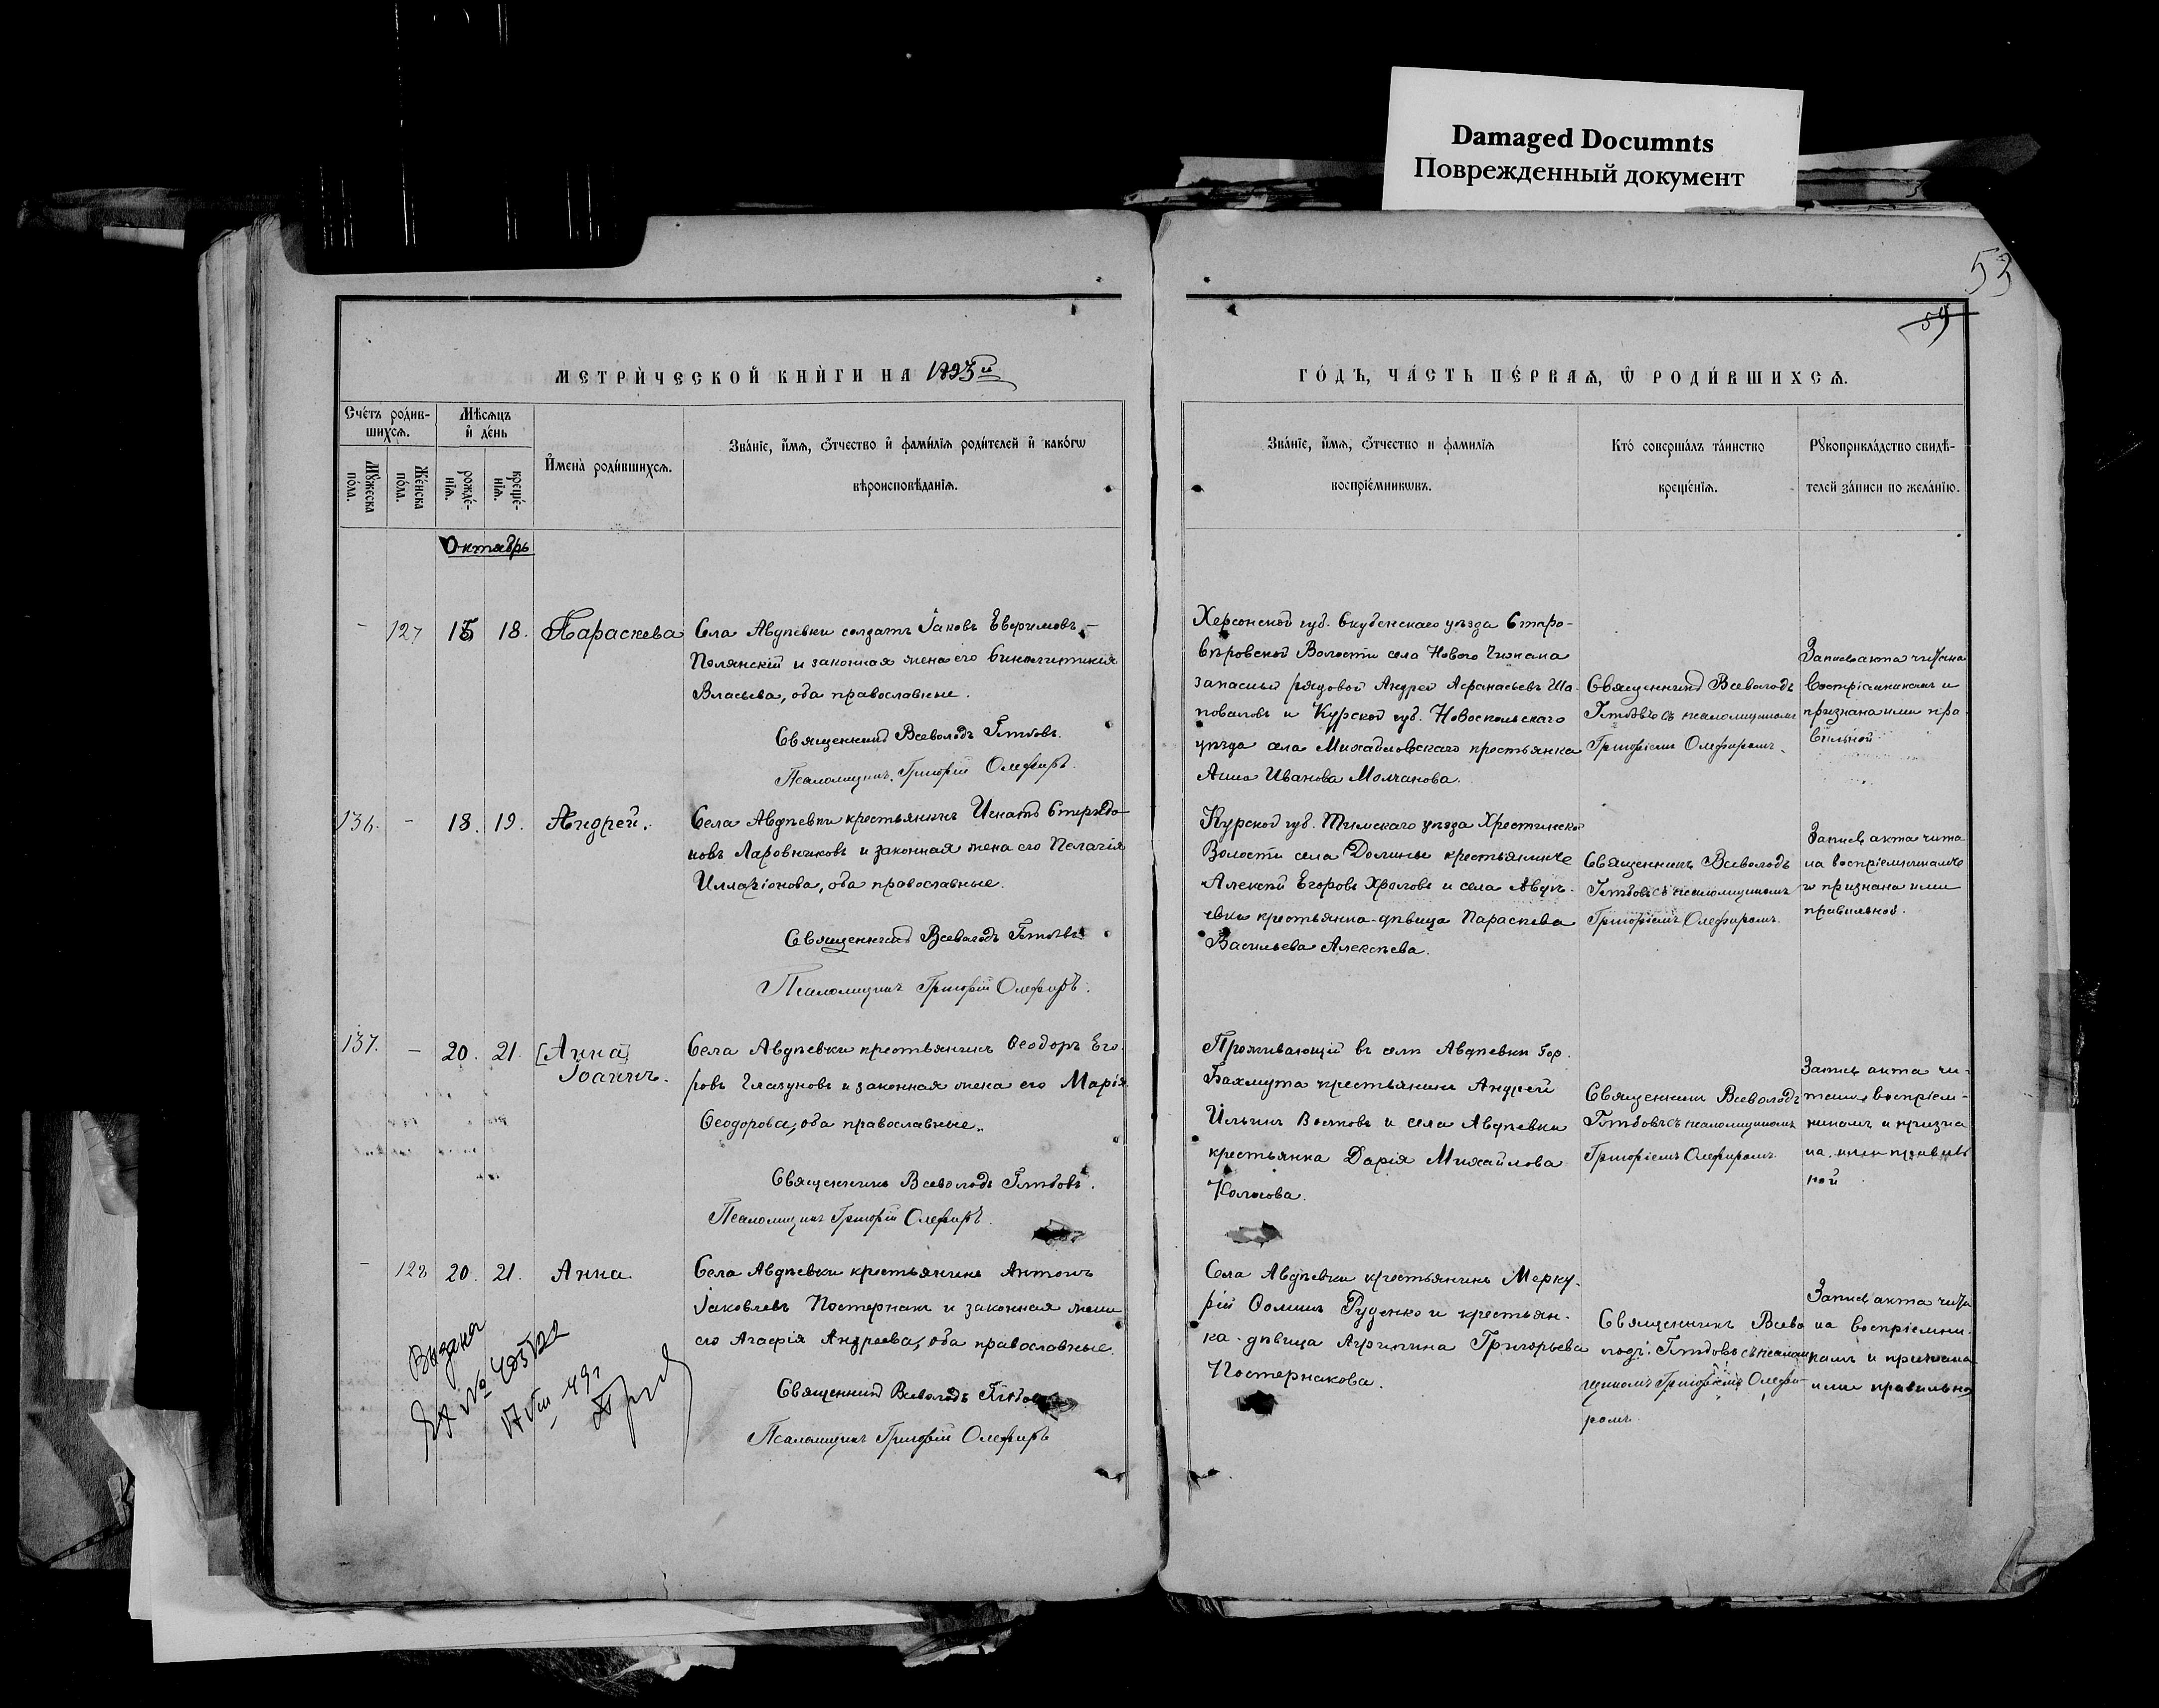 Damaged Documnts
Поврежденный документ
53
59
МЕТРИ́ЧЕСКОЙ КНИ́ГИ НА 1893й
ГО́ДЪ, ЧА́СТЬ ПЕ́РВАЯ, Ѿ РОДИ́ВШИХСЯ.
Сче́тъ роди́в-
шихся.
Мѣ́сяцъ
и҆ де́нь
Мꙋ́жеска по́ла.
Же́нска по́ла.
рожде́-
нїя.
креще́-
нїя.
И҆мена̀ роди́вшихся.
Зва́нїе, и҆́мя, ѻ҆́тчество и҆ фами́лїя роди́телей и҆ како́гѡ
вѣроисповѣ́данїя.
Зва́нїе, и҆́мя, ѻ҆́тчество и фамилїя
воспрїе́мникѡвъ.
Кто̀ соверша́лъ та́инство
креще́нїя.
Рꙋкоприкла́дство свидѣ́-
телей за́писи по жела́нїю.
Октябрь
- 127 15 18. Параскева
Села Авдѣевки солдатъ Іаковъ Евфимовъ
Полянскій и законная жена его
Власьева, оба православные.
Священникъ Всеволодъ Глѣбовъ.
Псаломщикъ Григорій Олефиръ.
Херсонской губ. уѣзда Старо-
Волости села Новаго
запасный рядовой Андрей Афанасьевъ Ша-
поваловъ и Курской губ. Новоскольскаго
уѣзда села Михайловскаго крестьянка
Анна Иванова Молчанова.
Священникъ Всеволодъ
Глѣбовъ съ псаломщикомъ
Григоріемъ Олефиромъ.
Запись акта читана
воспріемникамъ и
признана ими пра-
вильной
136. - 18. 19. Андрей.
Села Авдѣевки крестьянинъ Игнатъ Спиридо-
новъ Ларовниковъ и законная жена его Пелагія
Илларіонова, оба православные.
Священникъ Всеволодъ Глѣбовъ
Псаломщикъ Григорій Олефиръ.
Курской губ. Тимскаго уѣзда
Волости села Долинье крестьянинъ
Алексѣй Егоровъ Хроловъ и села Авдѣ-
евки крестьянка-дѣвица Параскева
Васильева Алексѣева.
Священникъ Всеволодъ
Глѣбовъ съ псаломщикомъ
Григоріемъ Олефиромъ.
Запись акта чита-
на воспріемникамъ
и признана ими
правильной.
137. - 20. 21. [Анна]
Іоаннъ.
Села Авдѣевки крестьянинъ Ѳеодоръ Его-
ровъ Глазуновъ и законная жена его Марія
Ѳеодорова, оба православные.
Священникъ Всеволодъ Глѣбовъ.
Псаломщикъ Григорій Олефиръ.
Проживающій въ селѣ Авдѣевки гор.
Бахмута крестьянинъ Андрей
Ильинъ Волковъ и села Авдѣевки
крестьянка Дарія Михайлова
Колосова.
Священникъ Всеволодъ
Глѣбовъ съ псаломщикомъ
Григоріемъ Олефиромъ
Запись акта чи-
тана воспріем-
никамъ и призна-
на ими правиль
ной
- 128 20. 21. Анна
Села Авдѣевки крестьянинъ Антонъ
Іаковлевъ Постернакъ и законная жена
его Агафія Андреева, оба православные.
Священникъ Всеволодъ Глѣбовъ
Псаломщикъ Григорій Олефиръ
Села Авдѣевки крестьянинъ Мерку-
рій Ѳоминъ Руденко и крестьян-
ка-дѣвица Агрипина Григорьева
Постернакова.
Священникъ Всево
лодъ Глѣбовъ съ псалом
щикомъ Григоріемъ Олефи-
ромъ.
Запись акта чита
на воспріемни-
камъ и признана
ими правильной
Выдана